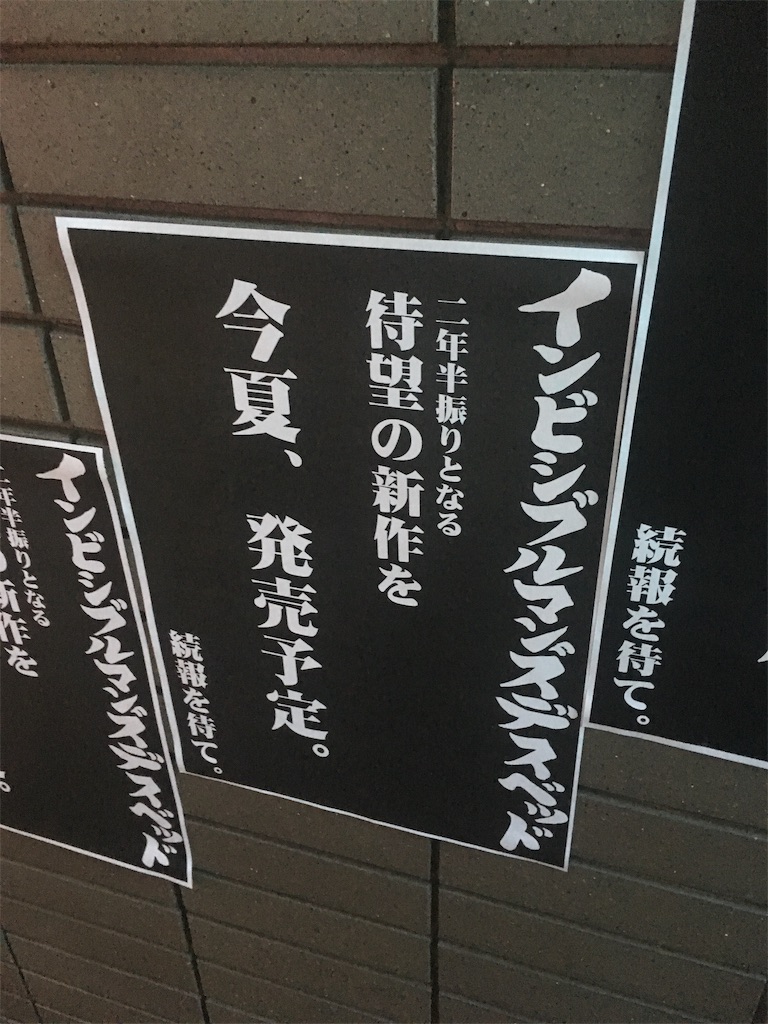 インビシブルマンズデスベッド
二年半振りとなる
待望の新作を
今夏、発売予定。
続報を待て。
続報を待て。
インビシブルマンズデスベッド
二年半振りとなる
新作を